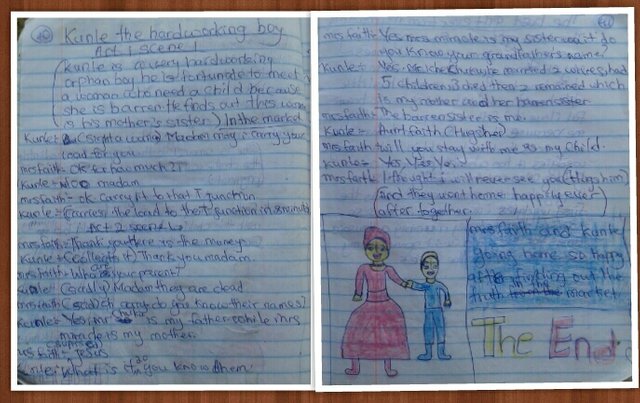 Kunle the hardworking boy
Act 1 scene 1
(Kunle is a very hardworking
orphan boy he is fortunate to meet
a woman who need a child because
she is barren. He finds out this woman
is his mother's sister) In the market
Kunle = Madam may i carry your
load for you
mrs faith = ok for how much?
Kunle = madam
mrs faith = ok carry it to that T junction
Kunle = (carries the load to the T junction in 8 minutes)
Act 2 scene
mrs faith = Thank you there is the money
Kunle = (collects it) Thank you madam
mrs faith = who are your parent?
Kunle = (sadly) Madam they are dead
mrs faith = (sad) sorry do you know their names?
Kunle = Yes, mr is my father while mrs
miracle is my mother.
mrs faith = Jesus
Kunle = what is it do you know them
mrs faith = Yes mrs miracle is my sister wait do
you know your grandfather's name?
Kunle = Yes, he married 2 wives, had
5 children, 3 died then 2 remained which
is my mother and her barren sister.
mrs faith = The barren sister is me.
Kunle = Aunt faith (Hugs her)
mrs faith = will you stay with me as my child.
Kunle = Yes Yes Yes.
mrs faith = I thought i will never see you (Hugs him)
(And they went home happily ever
after together.
mrs faith and kunle
going home so happy
after finding out the
truth in the market.
The End